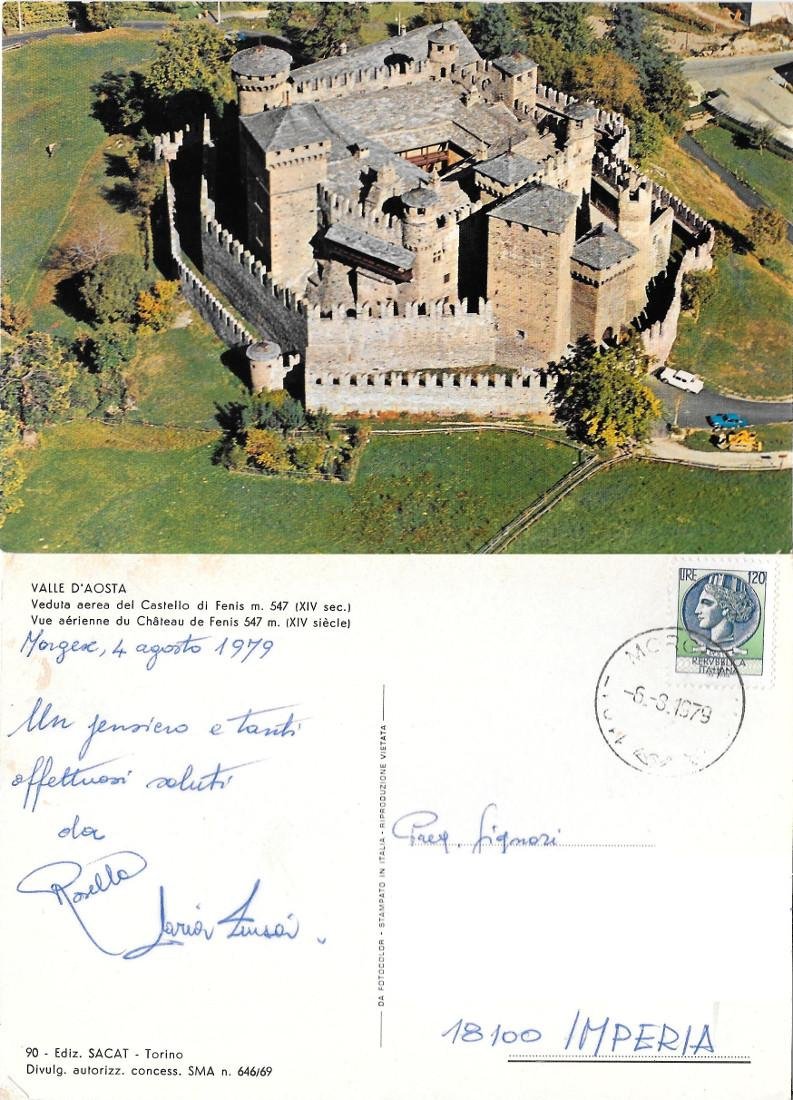 VALLE D'AOSTA
Veduta aerea del Castello di Fenis m. 547 (XIV sec.)
Vue aérienne du Château de Fenis 547 m. (XIV siècle)
Morgex, 4 agosto 1979
Un pensiero e tanti
affettuosi saluti
da
Rosella
LIRE 120
REPVBBLICA
ITALIANA
-6.-8.1979
DA FOTOCOLOR - STAMPATO IN ITALIA - RIPRODUZIONE VIETATA
Preg. Signori
18100 IMPERIA
90 - Ediz. SACAT - Torino
Divulg. autorizz. concess. SMA n. 646/69